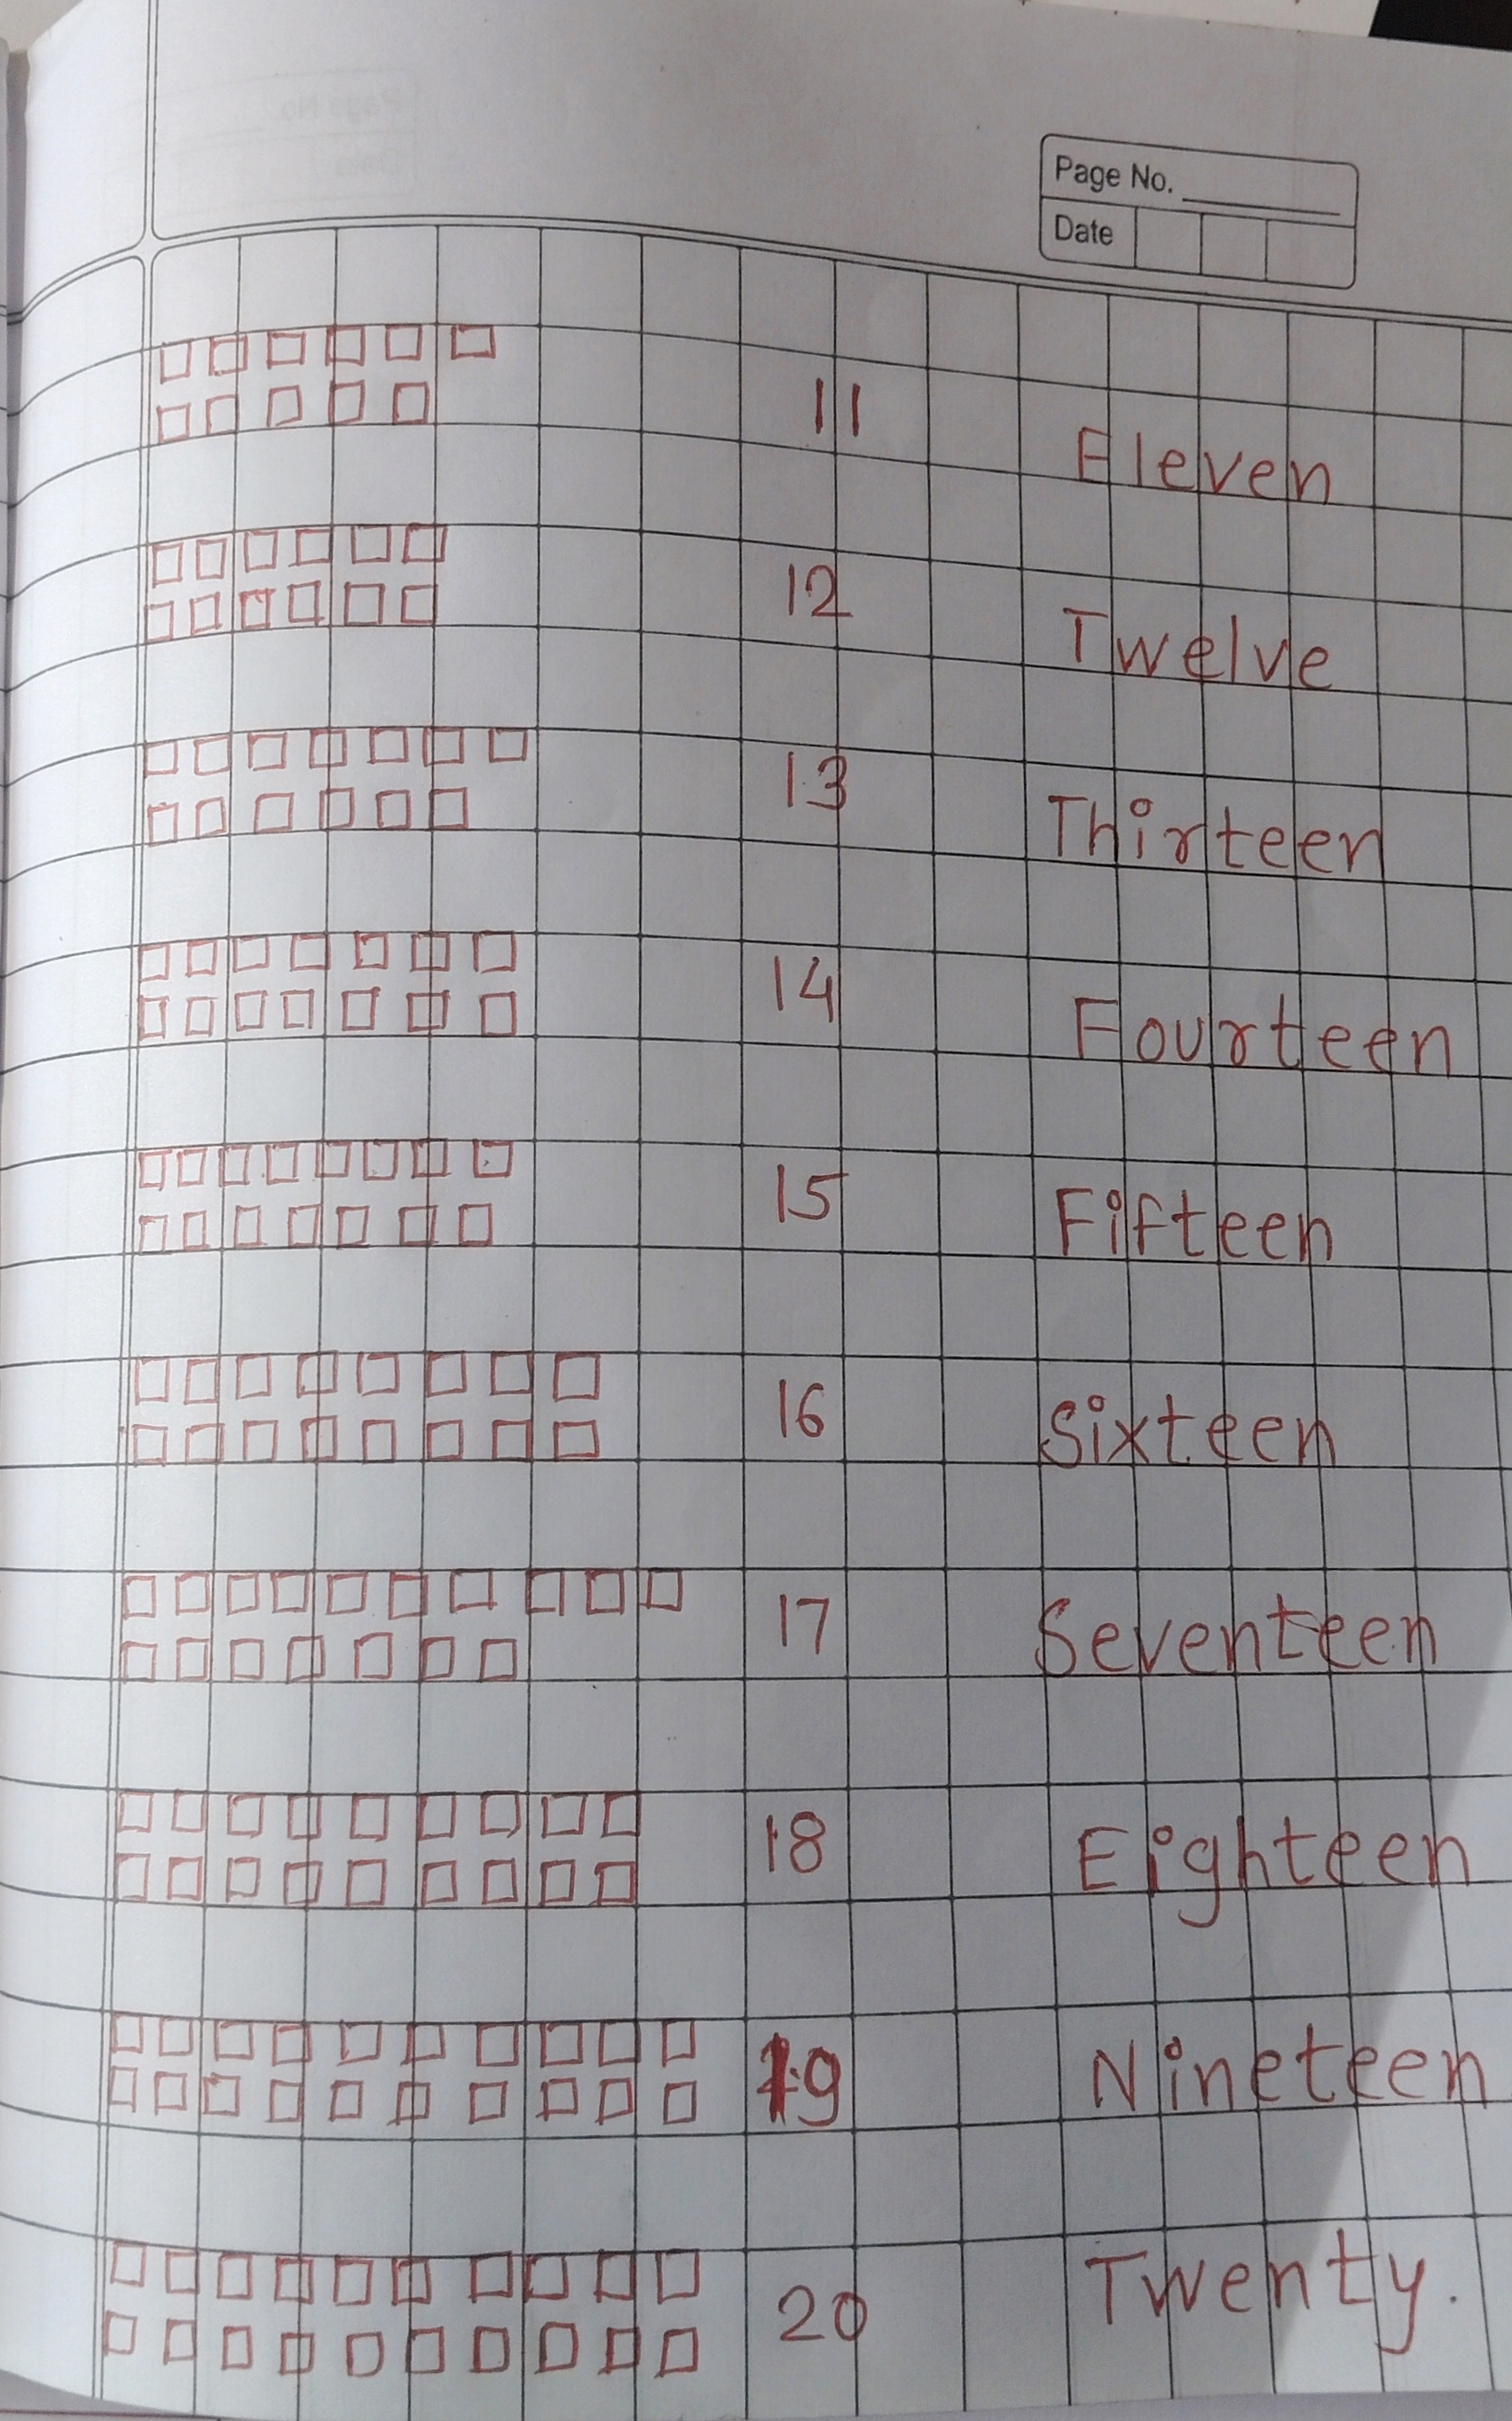 Page No.
Date
11 Eleven
12 Twelve
13 Thirteen
14 Fourteen
15 Fifteen
16 Sixteen
17 Seventeen
18 Eighteen
19 Nineteen
20 Twenty.